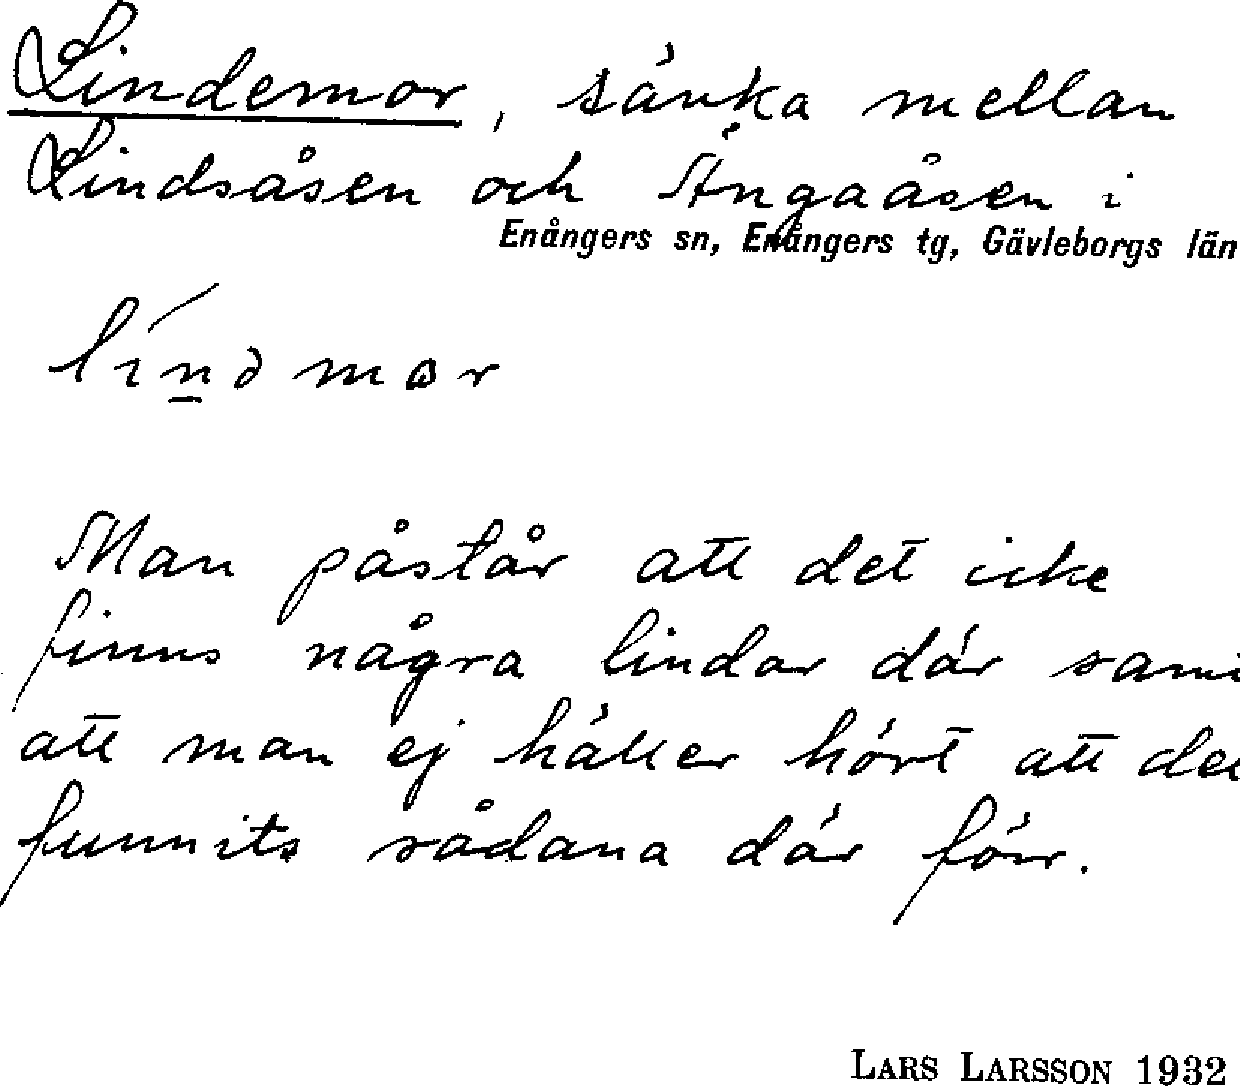 Lindemor, sänka mellan
Lindsåsen och Ängaåsen i
Enångers sn, Enångers tg, Gävleborgs län
líṉdmɷr
Man påstår att det icke
finns några lindar där samt
att man ej häller hört att det
funnits sådana där förr.
LARS LARSSON 1932